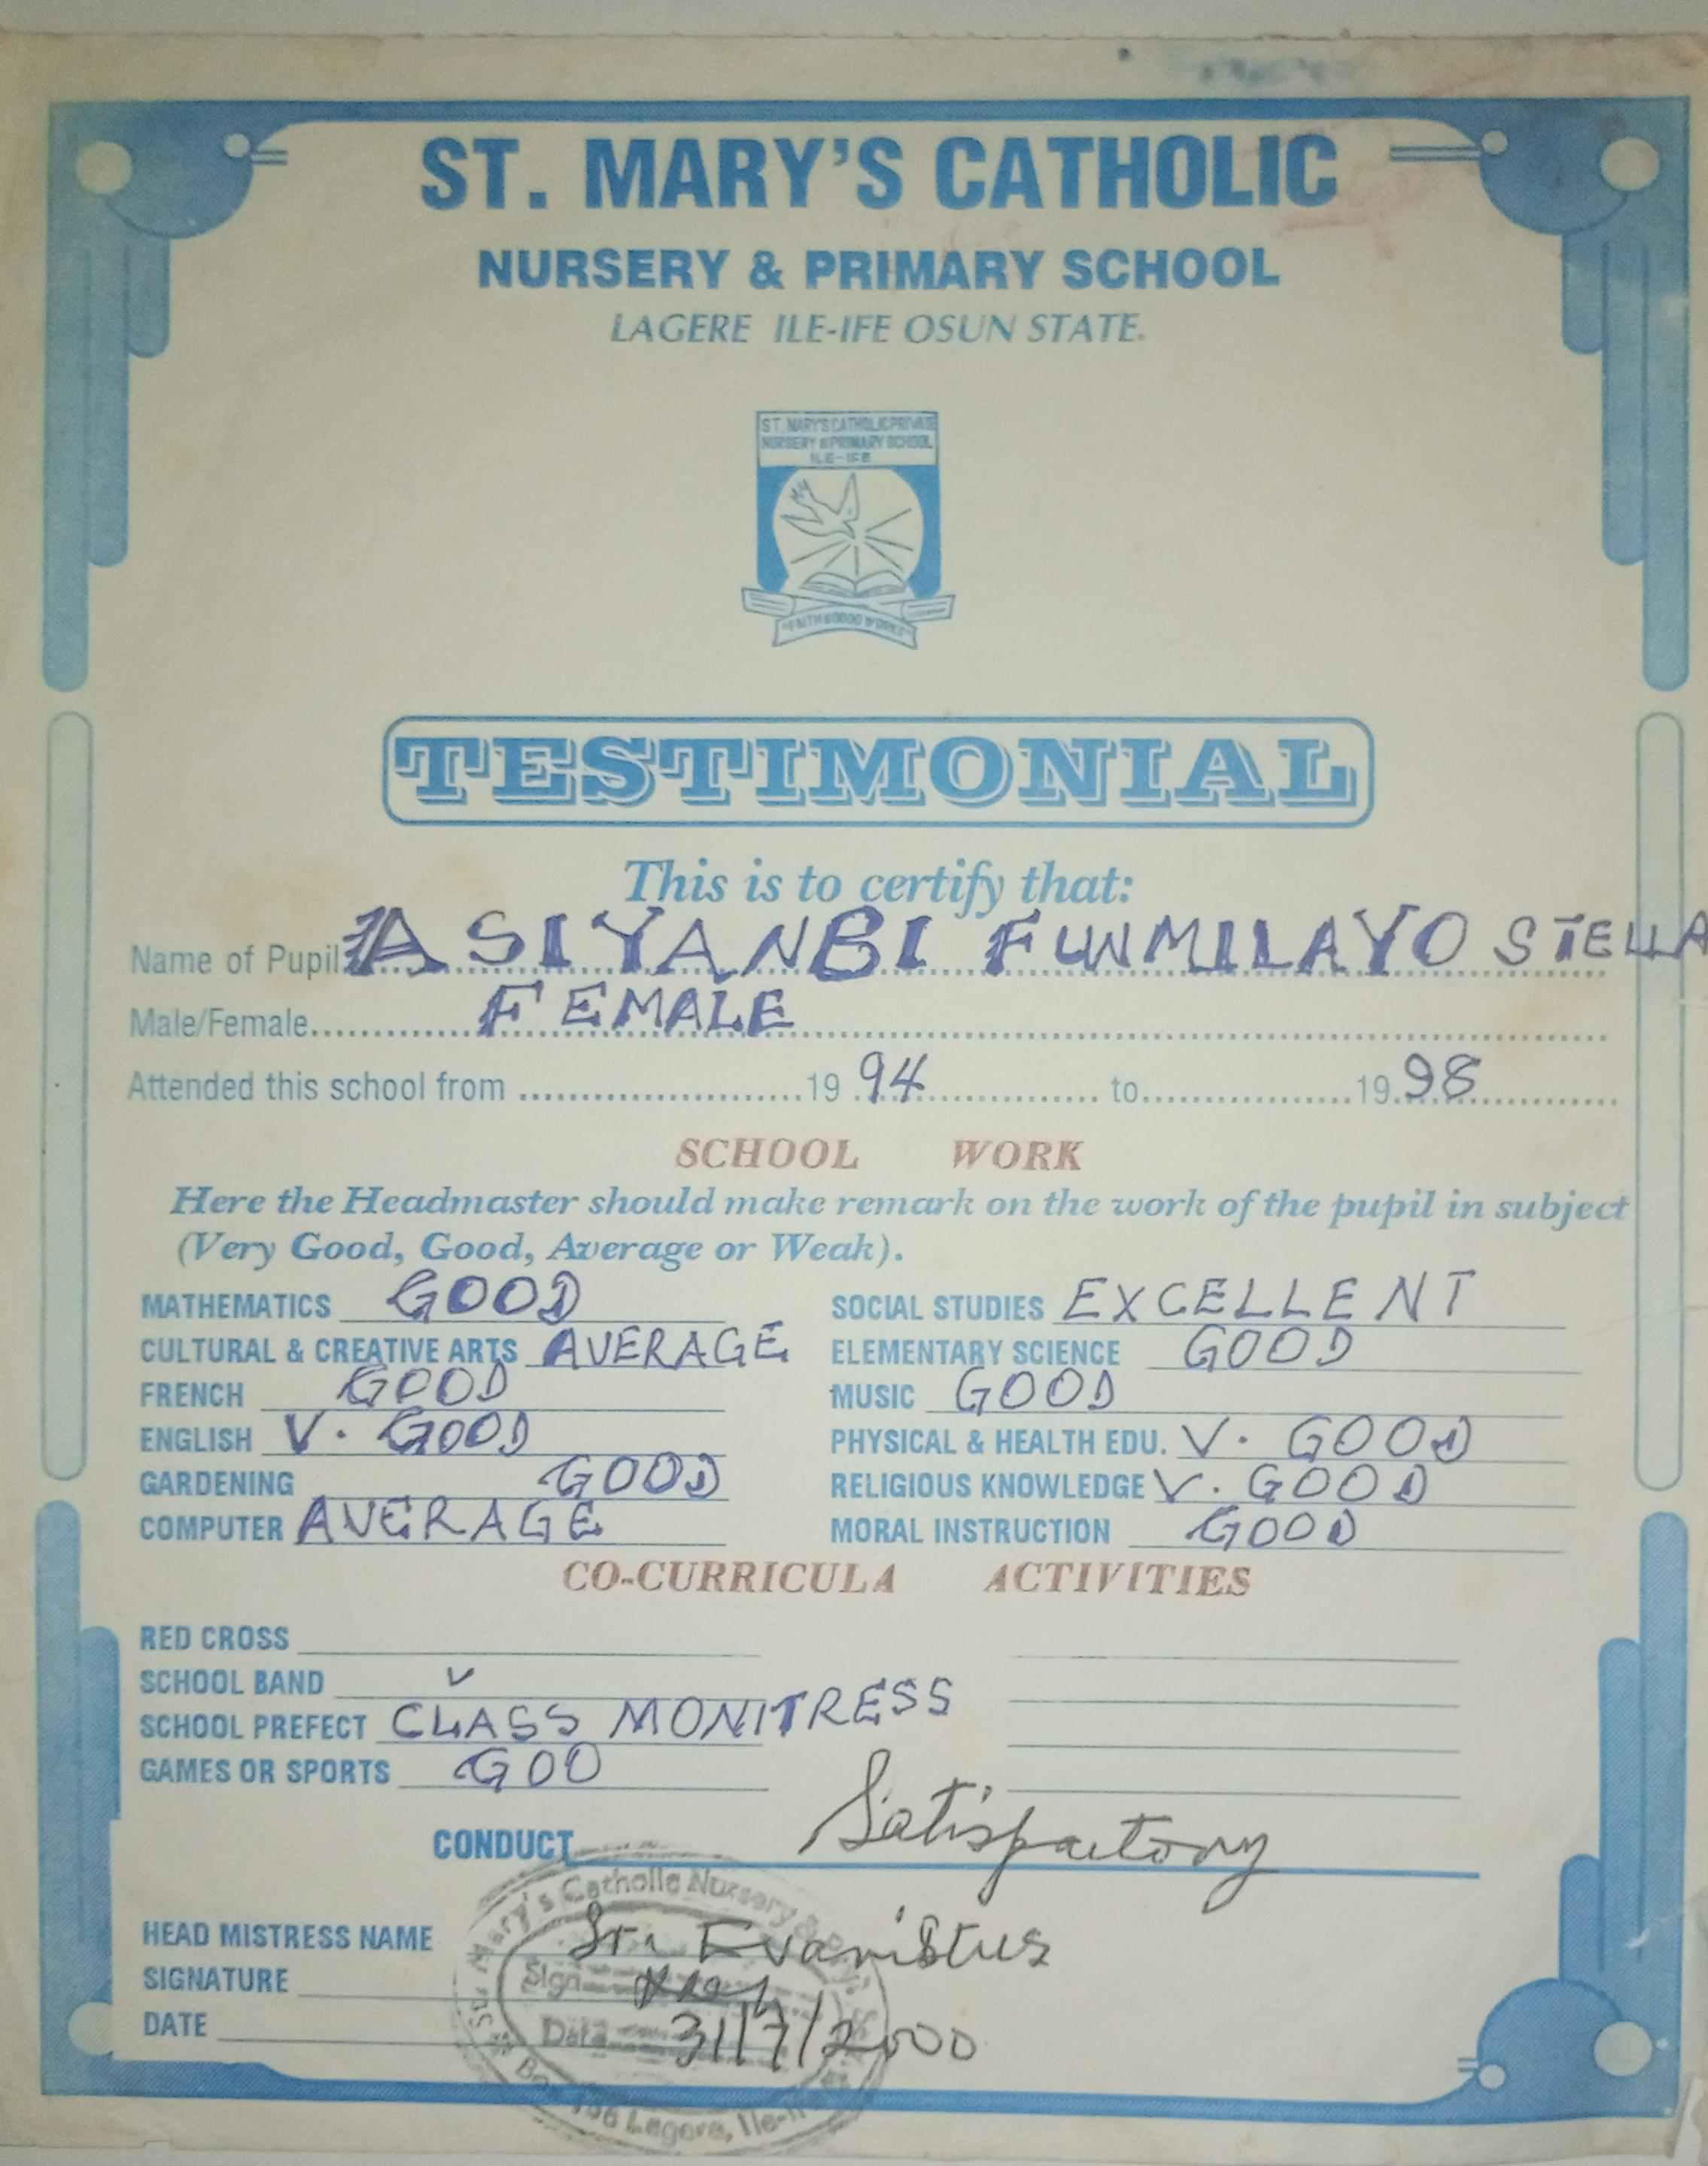 ST. MARY'S CATHOLIC
NURSERY & PRIMARY SCHOOL
LAGERE ILE-IFE OSUN STATE.
ST. MARY'S CATHOLIC PRIVATE
NURSERY & PRIMARY SCHOOL
ILE-IFE
"FAITH & GOOD WORKS"
TESTIMONIAL
This is to certify that:
Name of Pupil ASIYANBI FUNMILAYO STELLA
Male/Female FEMALE
Attended this school from 19 94 to 19 98
SCHOOL WORK
Here the Headmaster should make remark on the work of the pupil in subject
(Very Good, Good, Average or Weak).
MATHEMATICS GOOD SOCIAL STUDIES EXCELLENT
CULTURAL & CREATIVE ARTS AVERAGE ELEMENTARY SCIENCE GOOD
FRENCH GOOD MUSIC GOOD
ENGLISH V. GOOD PHYSICAL & HEALTH EDU. V. GOOD
GARDENING GOOD RELIGIOUS KNOWLEDGE V. GOOD
COMPUTER AVERAGE MORAL INSTRUCTION GOOD
CO-CURRICULA ACTIVITIES
RED CROSS
SCHOOL BAND ✓
SCHOOL PREFECT CLASS MONITRESS
GAMES OR SPORTS GOO
CONDUCT Satisfactory
St. Mary's Catholic Nursery &
HEAD MISTRESS NAME Sr. Evaristus
SIGNATURE Sign
DATE Date 31/7/2000
Box Lagere, Ile-Ife